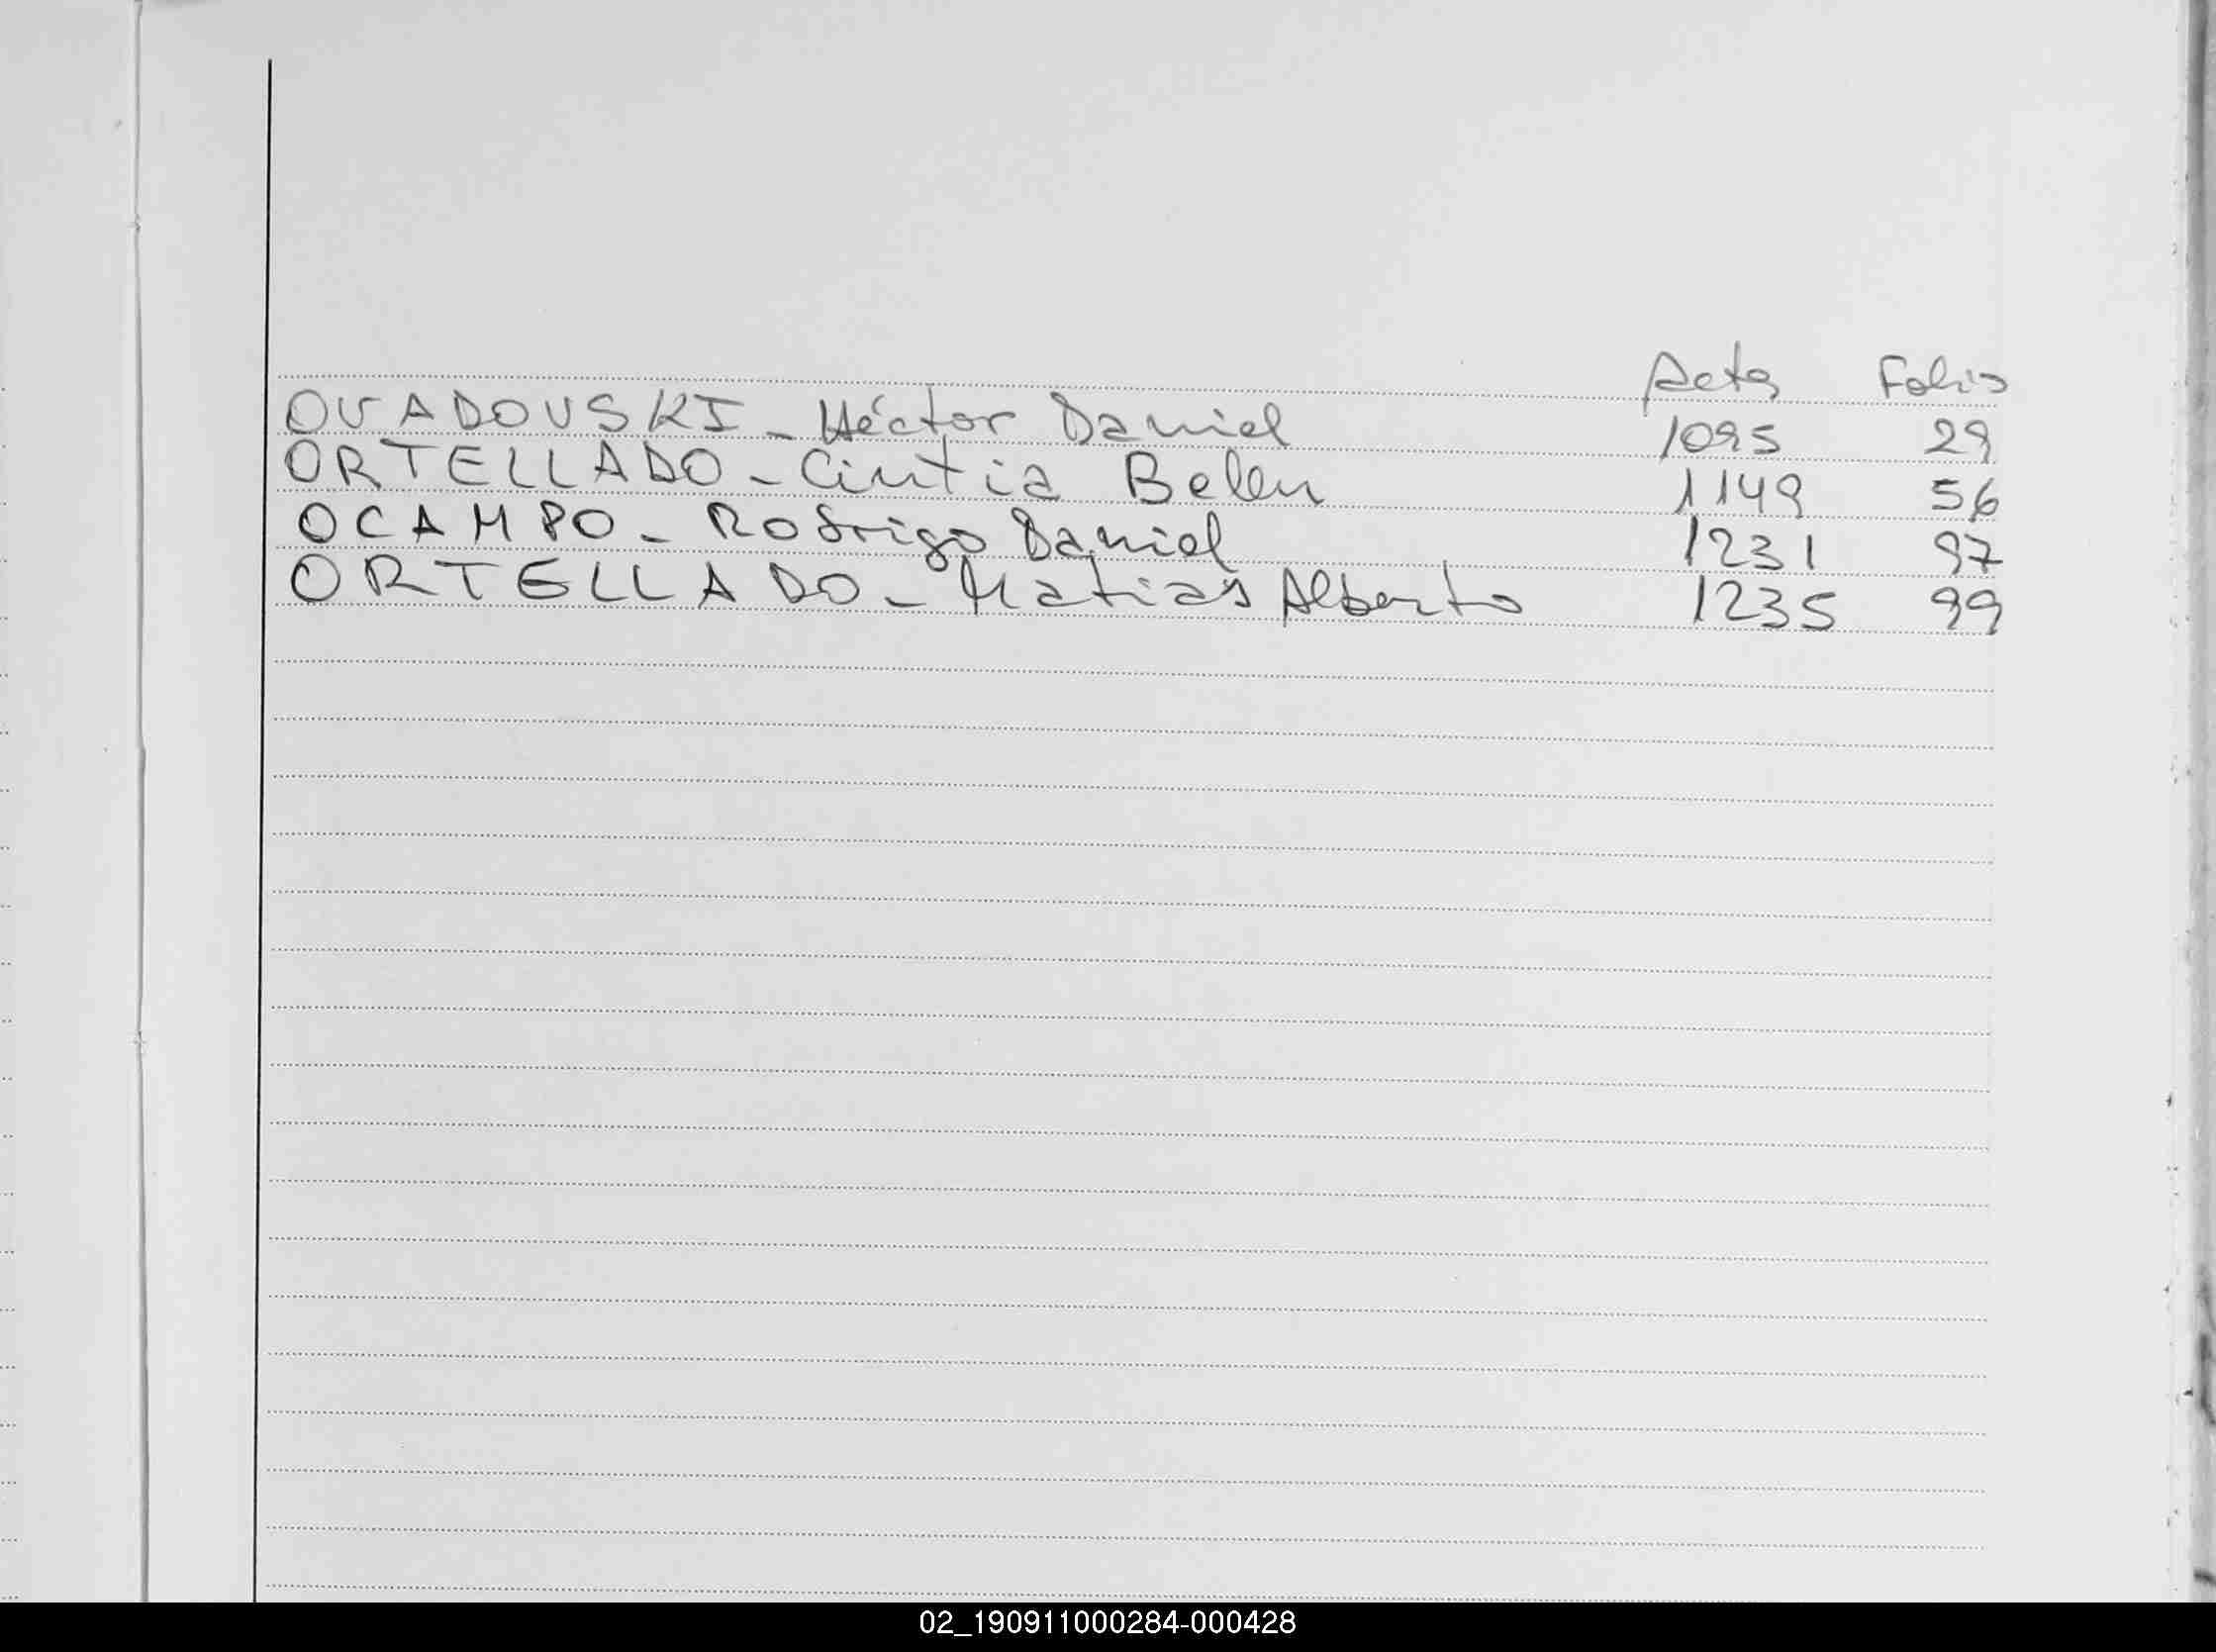 Acta Folio
OVADOVSKI - Héctor Daniel 1095 29
ORTELLADO - Cintia Belen 1149 56
OCAMPO - Rodrigo Daniel 1231 97
ORTELLADO - Matias Alberto 1235 99
02_190911000284-000428